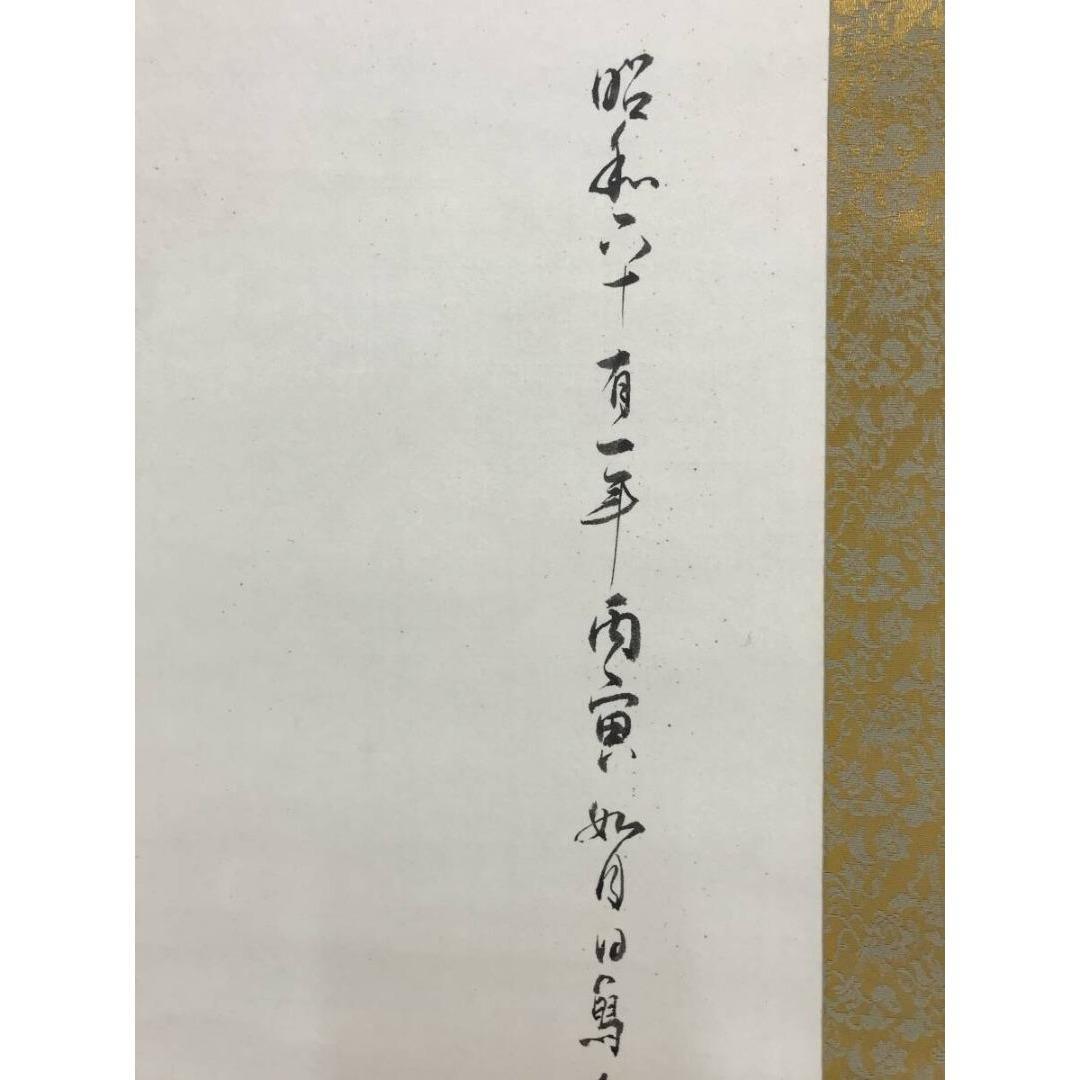 昭和六十有一年丙寅如月日寫